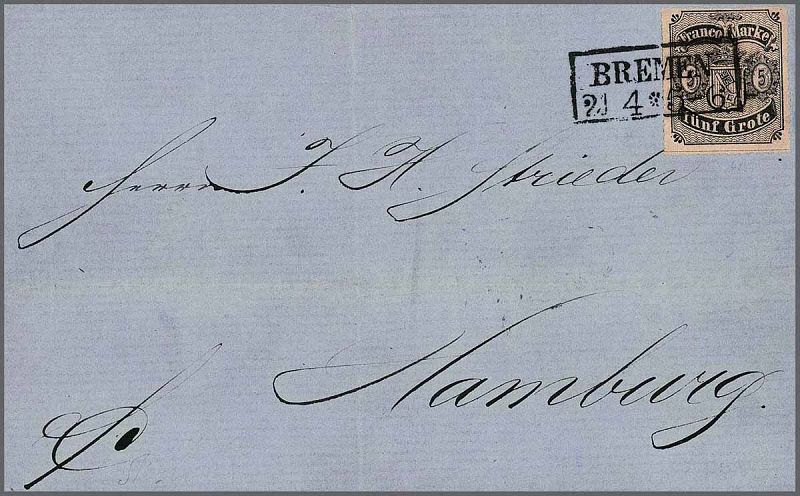 Franco Marke.
5 5
Fünf Grote
BREMEN
21 4 *
Herrn J. H. Strieder
Hamburg.